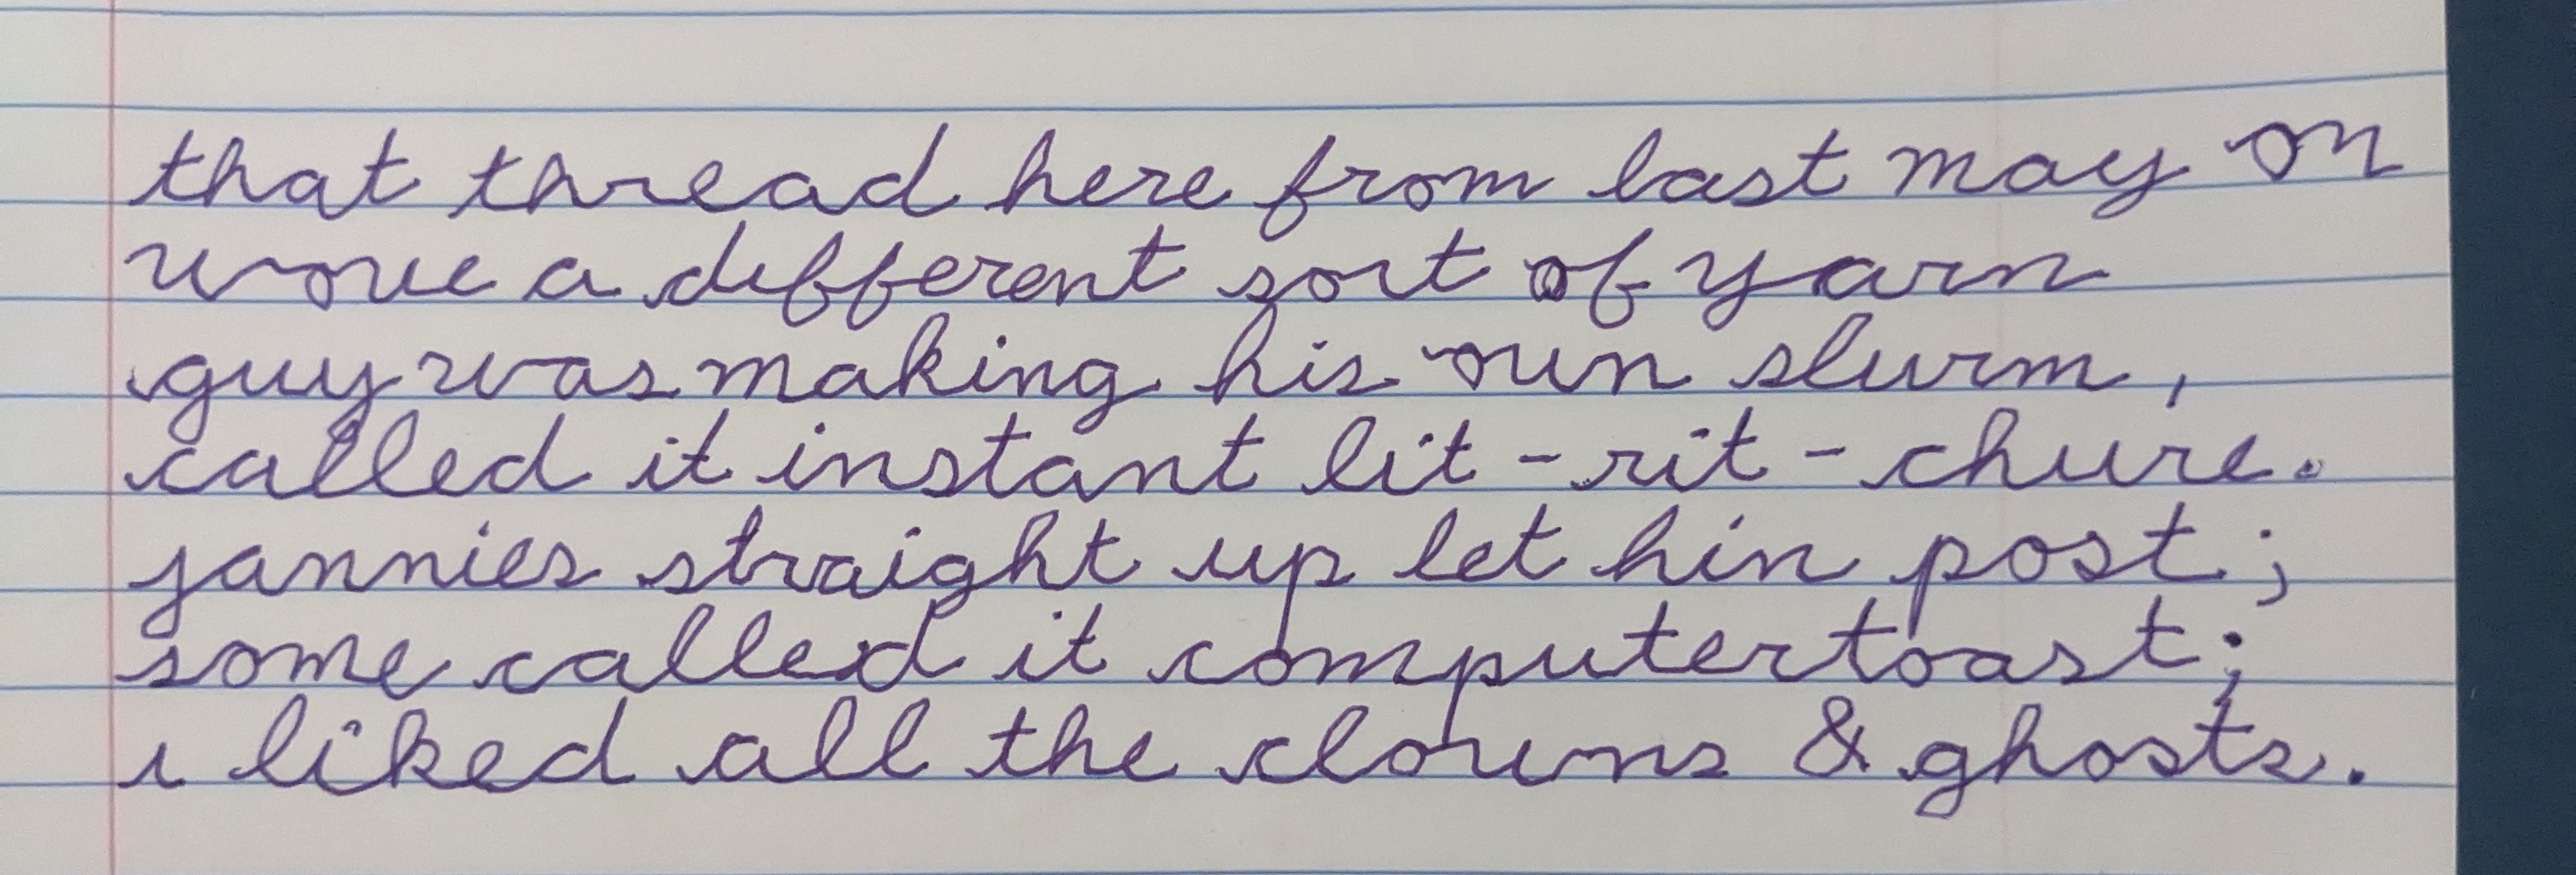 that thread here from last may on
wove a different sort of yarn
guy was making his own slurm,
called it instant lit-rit-chure.
jannies straight up let him post;
some called it computertoast;
i liked all the clowns & ghosts.